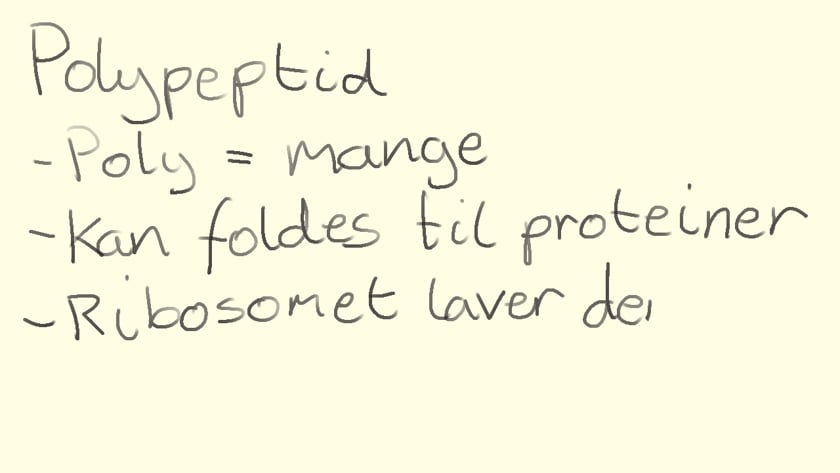 Polypeptid
- Poly = mange
- Kan foldes til proteiner
- Ribosomet laver